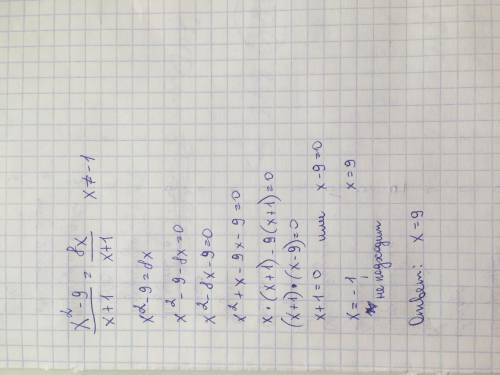 x² - 9 / x + 1 = 8x / x + 1   x ≠ -1
x² - 9 = 8x
x² - 9 - 8x = 0
x² - 8x - 9 = 0
x² + x - 9x - 9 = 0
x • (x + 1) - 9(x + 1) = 0
(x + 1) • (x - 9) = 0
x + 1 = 0 или x - 9 = 0
x = -1   x = 9
не подходит
Ответ: x = 9